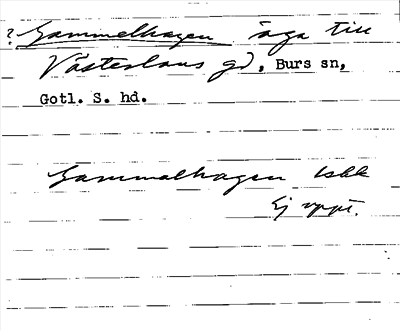 ? Gammelhagen äga till
Västerlaus gd, Burs sn,
Gotl. S. hd.
Gammalhagen bskk
Ej uppt.